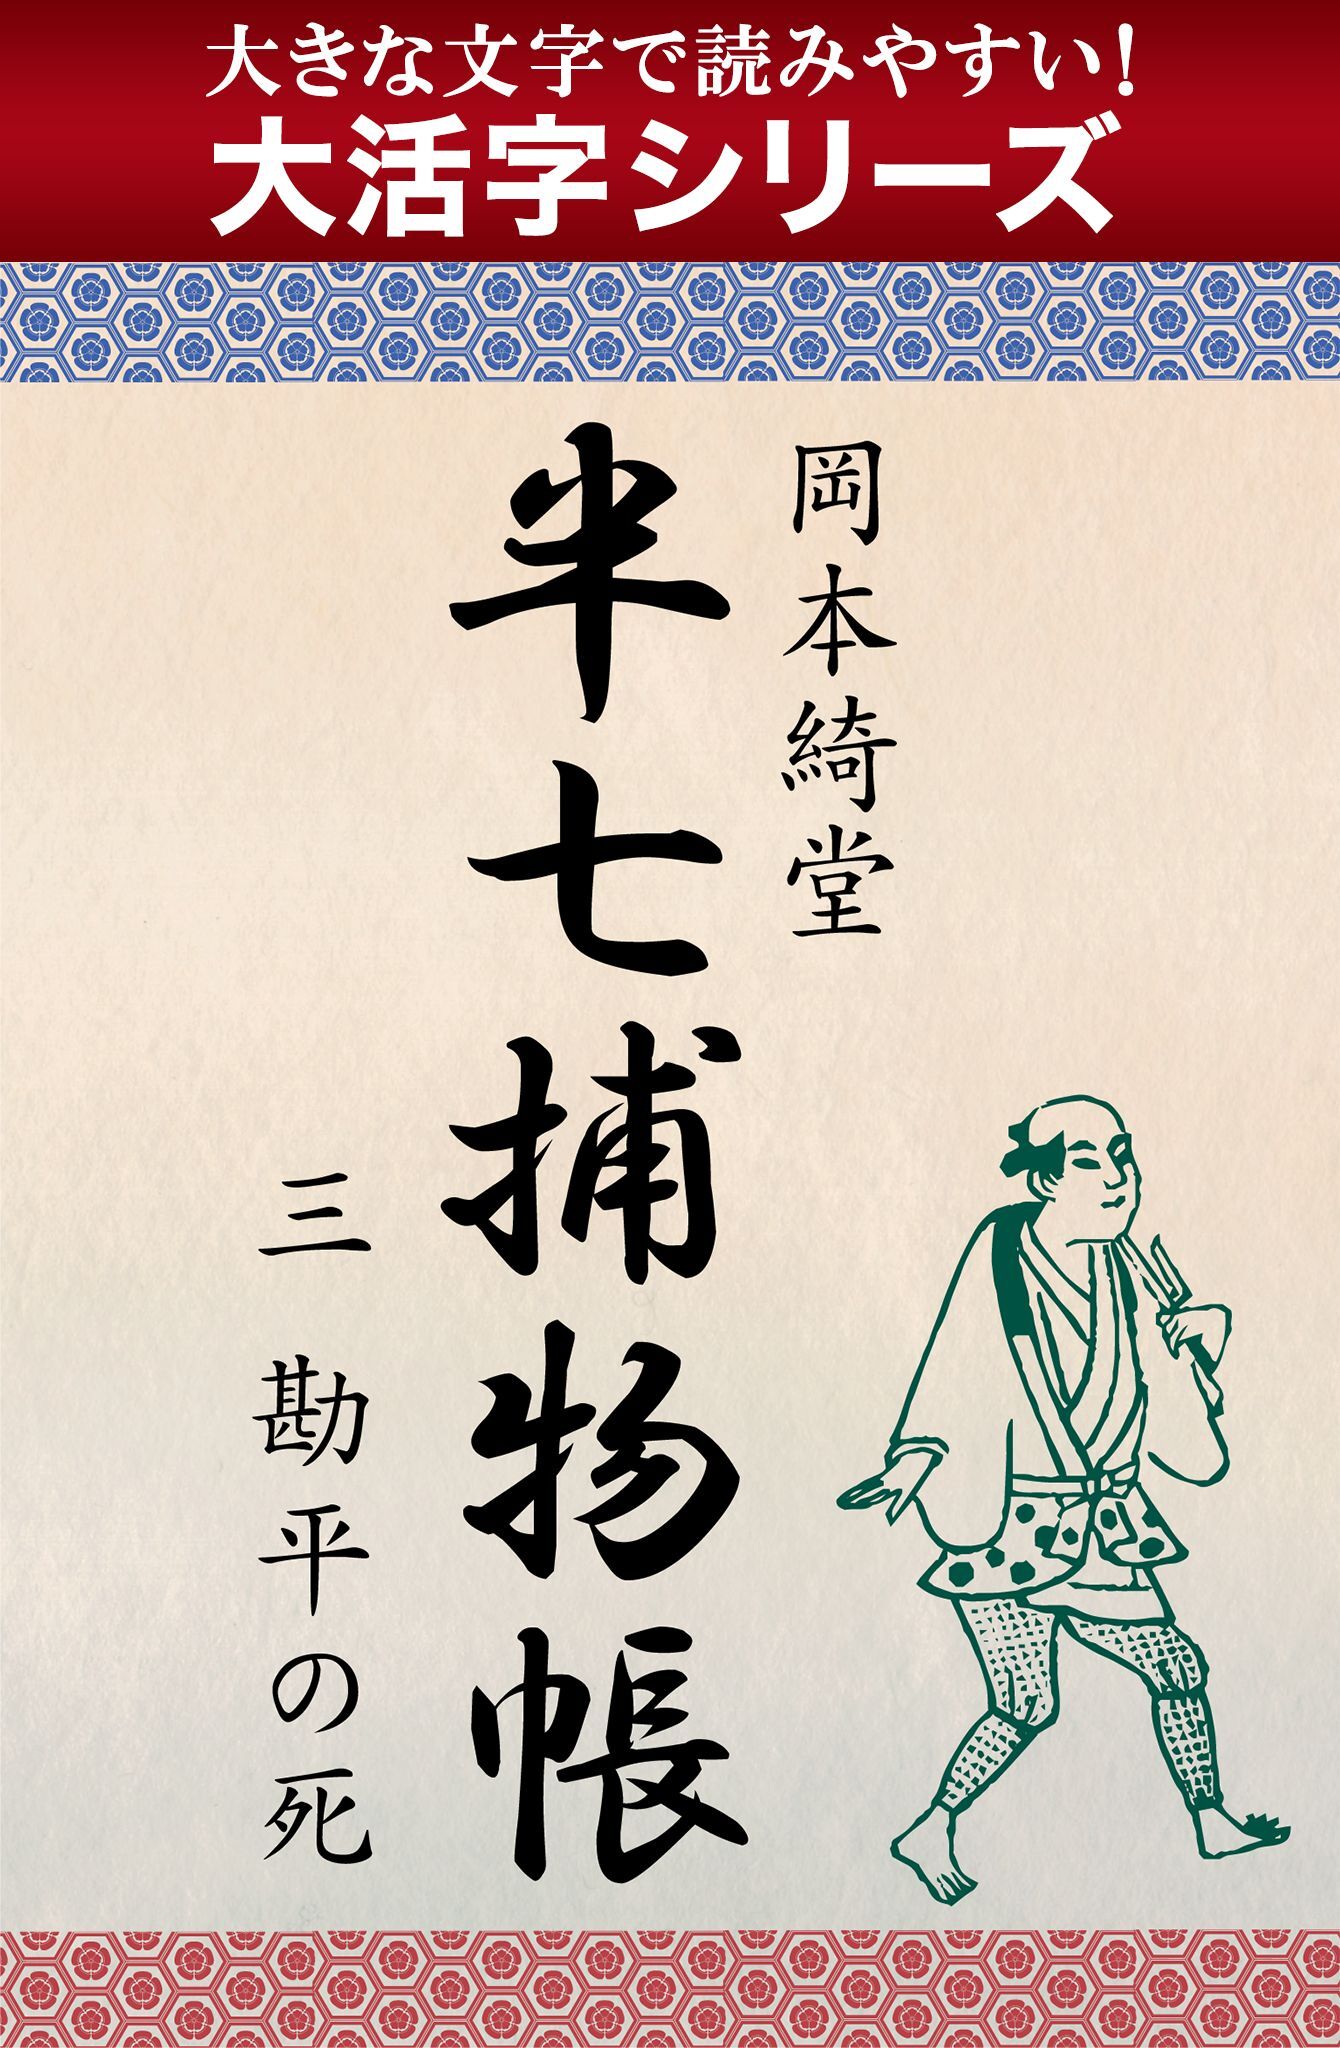 大きな文字で読みやすい！
大活字シリーズ
岡本綺堂
半七捕物帳
三 勘平の死